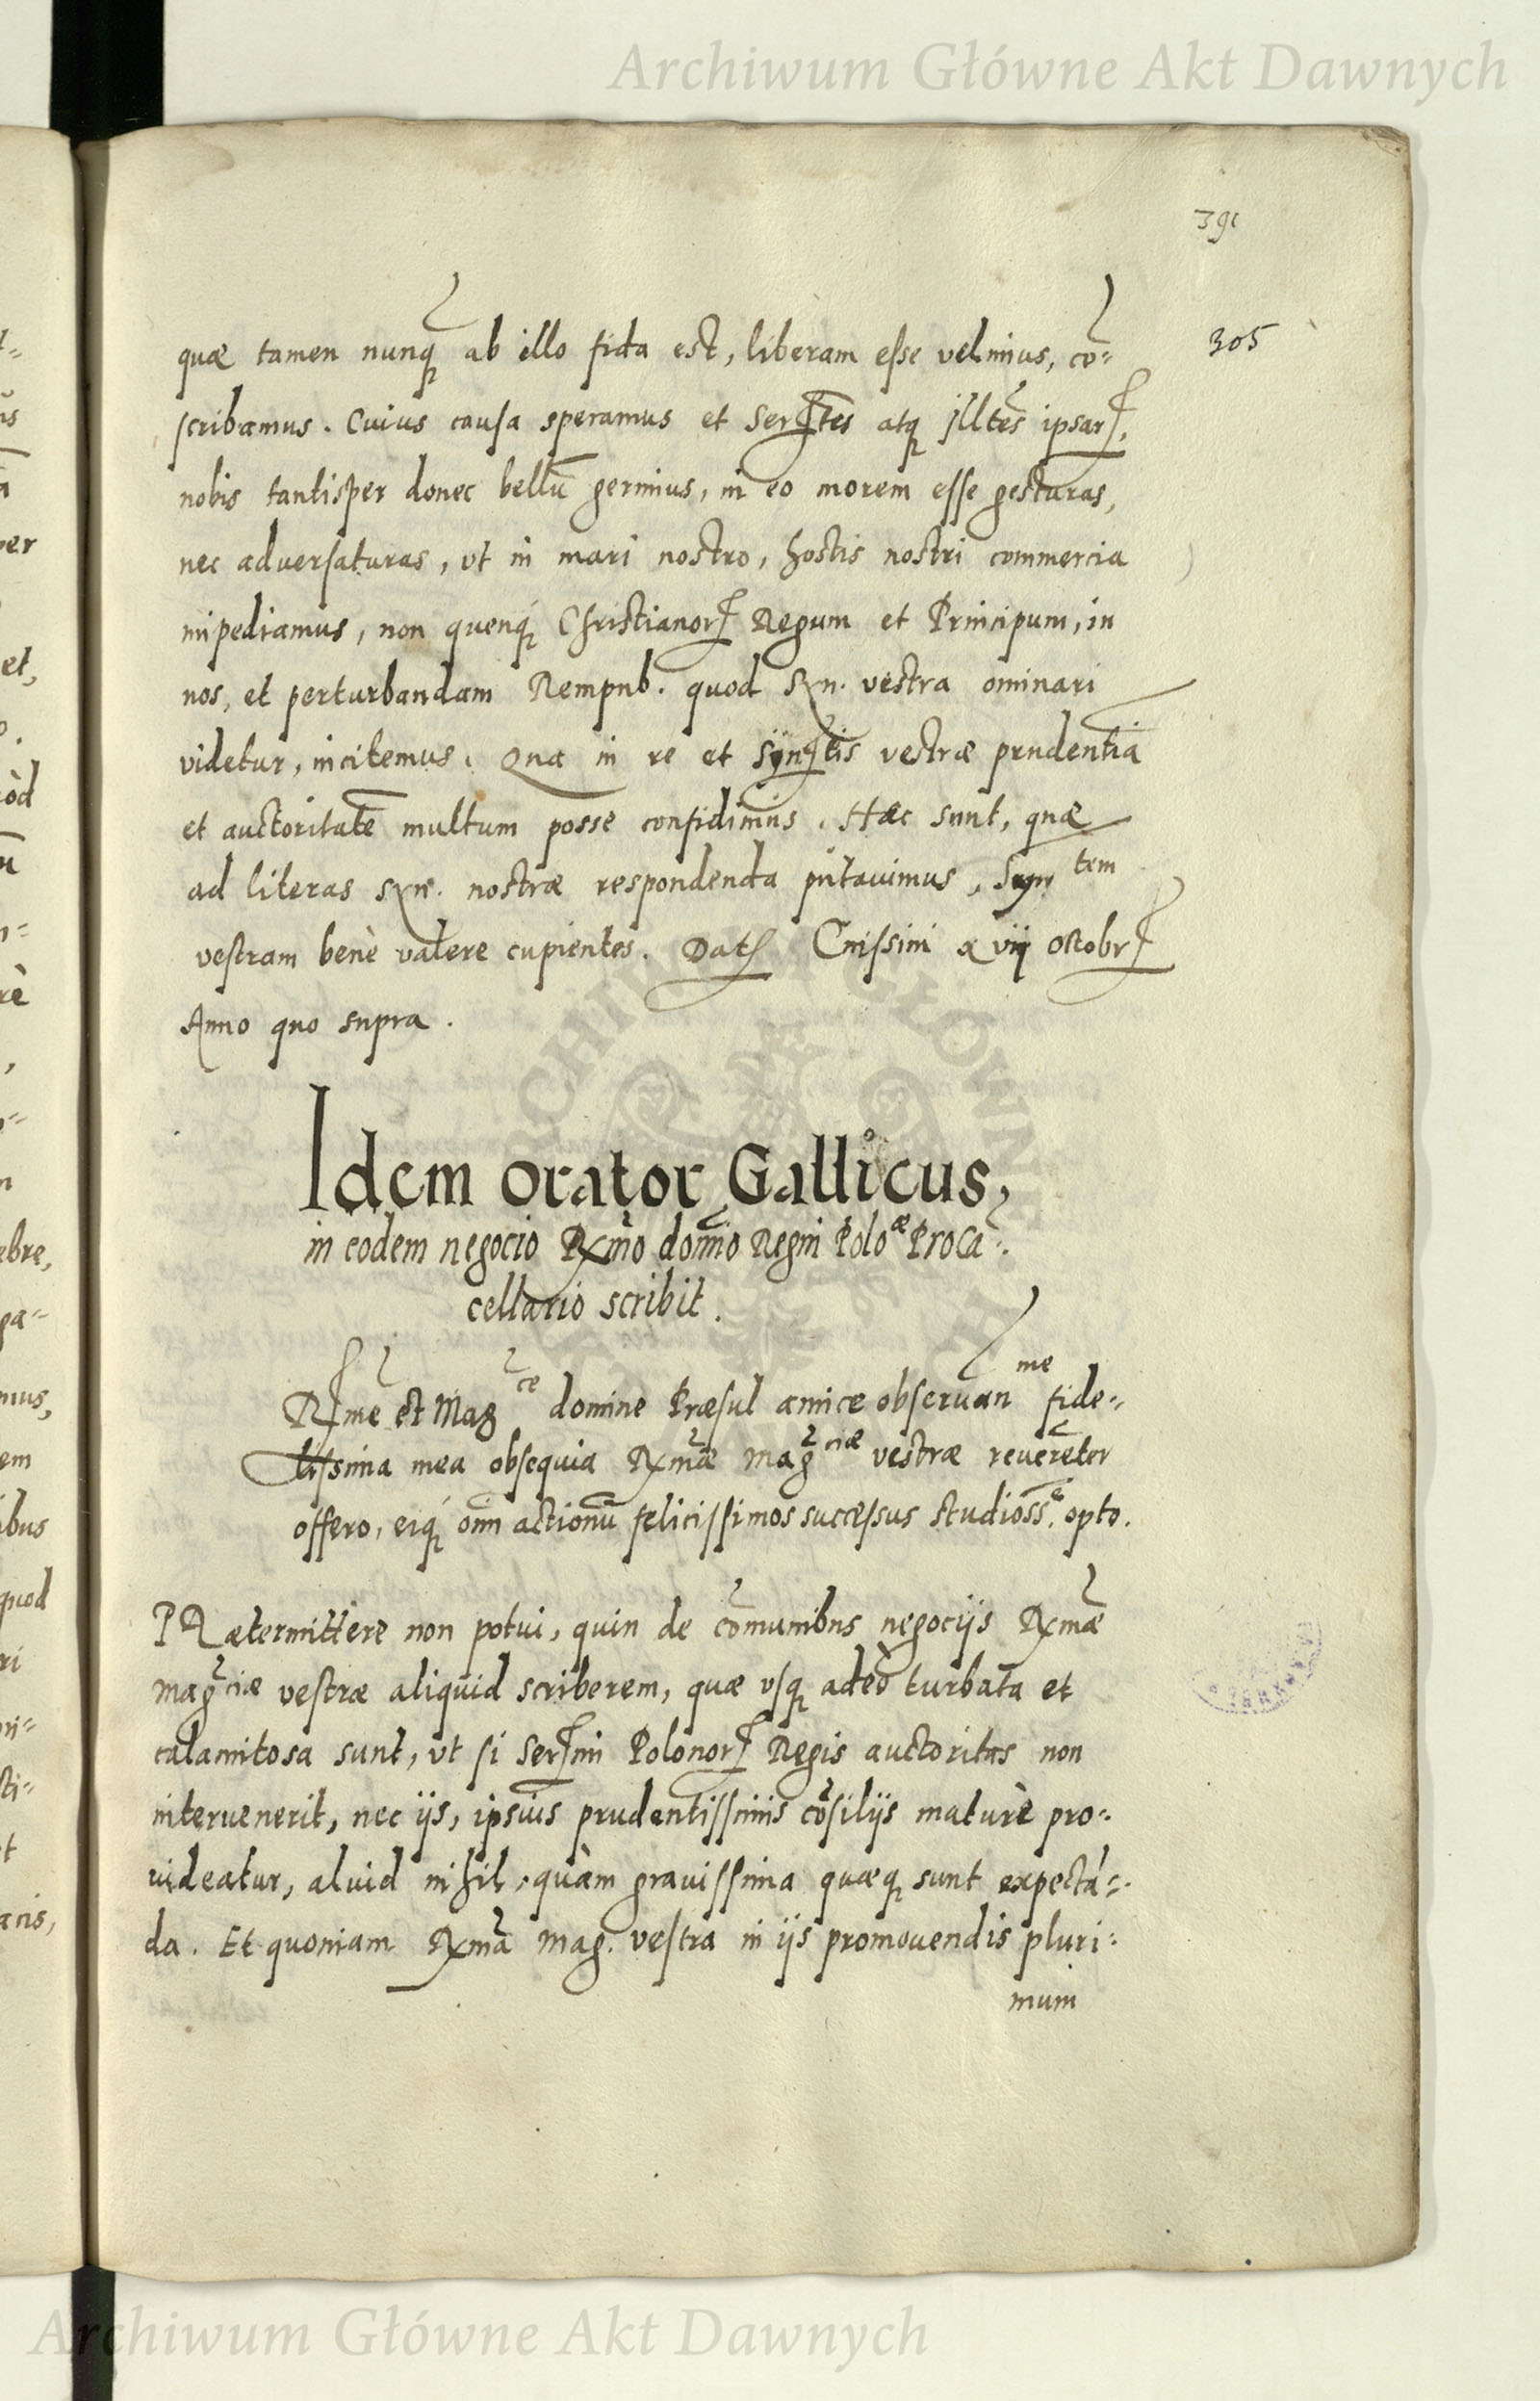 Archiwum Główne Akt Dawnych
391
305
quæ tamen nunq̃ ab illo fida est, liberam esse velimus, cō=
scribamus. Cuius causa speramus et Sertes atq; Jlltes ipsar,
nobis tantisper donec bellū gerimus, in eo morem esse gesturas,
nec adversaturas, vt in mari nostro, hostis nostri commercia
impediamus, non quenq; Christianor Regum et Principum, in
nos, et perturbandam Rempub. quod Syn. vestra ominari
videtur, incitemus. Qua in re et Syntis vestræ prudentiā
et auctoritatē multum posse confidimus. Hæc sunt, quæ
ad literas Syn. nostræ respondenda putavimus, Syntem
vestram benè valere cupientes. Dat Cnissini xvij Octobr
Anno quo supra.
Idem orator Gallicus,
in eodem negocio Rxmo domīo Regni Poloæ Procā=.
cellario scribit.
Rme et Magce domine Præsul amice observanme fide=
lissima mea obsequia Rxmæ Magciæ vestræ reverēter
offero, eiq; oīm actionū felicissimos successus studioss.e opto.
PRætermittere non potui, quin de cōmunibus negocijs Rxmæ
Magciæ vestræ aliquid scriberem, quæ vsq; adeò turbata et
calamitosa sunt, vt si Sermi Polonor Regis auctoritas non
intervenerit, nec ijs, ipsius prudentissimis cōsilijs maturè pro=.
videatur, aluid nihil, quàm gravissima quæq; sunt expectā=.
da. Et quoniam Rxma Mag. vestra in ijs promovendis pluri=.
mum
Archiwum Główne Akt Dawnych